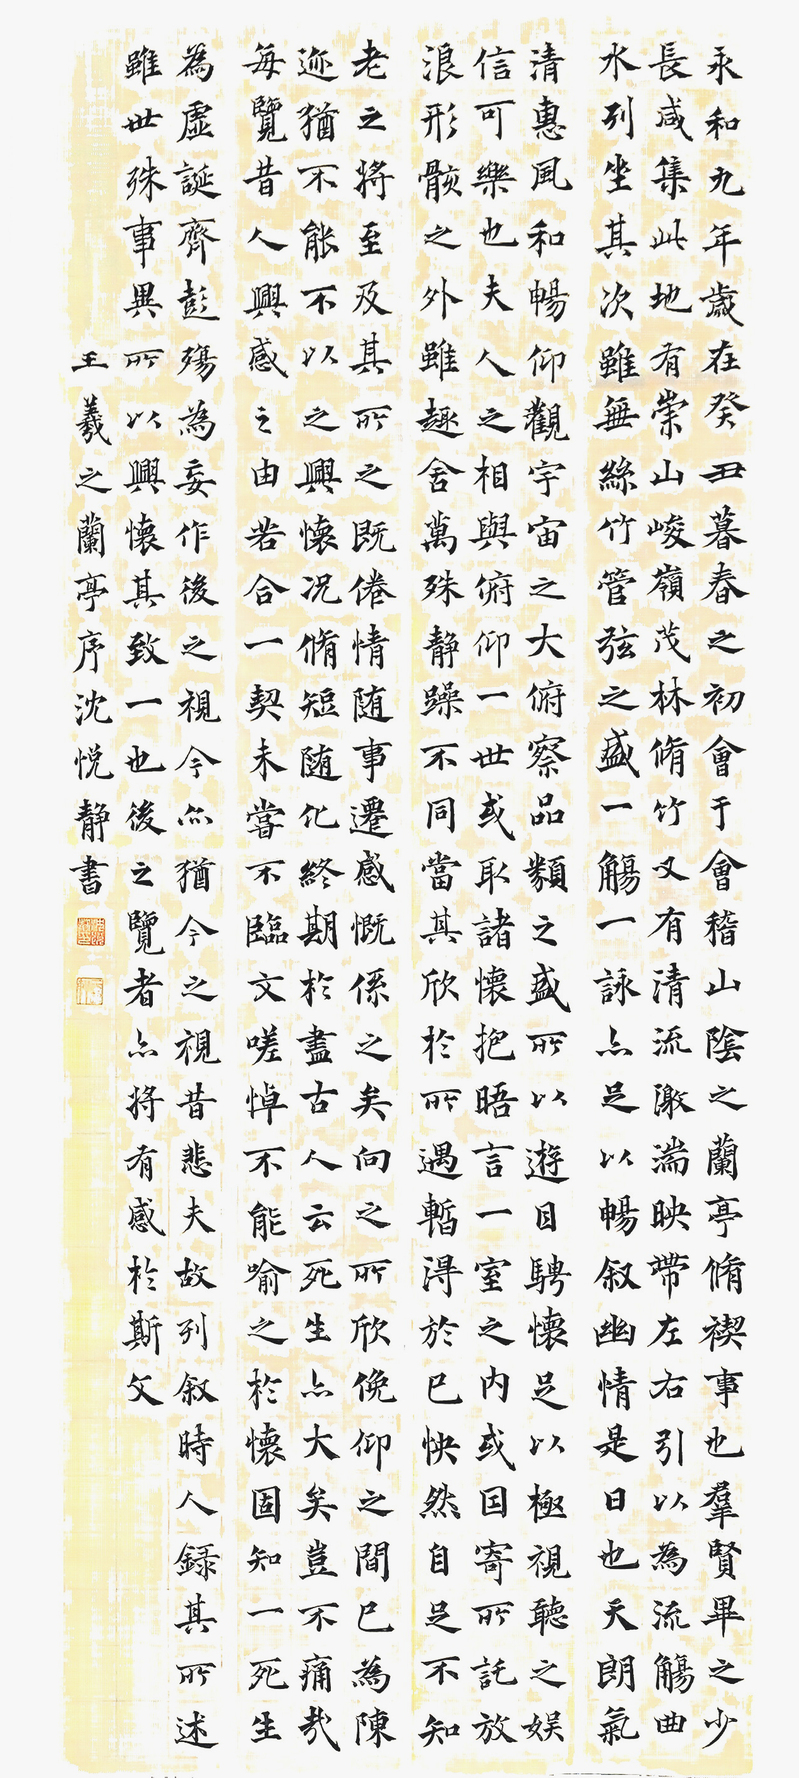 永和九年歲在癸丑暮春之初會于會稽山陰之蘭亭脩禊事也羣賢畢之少
長咸集此地有崇山峻嶺茂林脩竹又有清流激湍映帶左右引以為流觴曲
水列坐其次雖無絲竹管弦之盛一觴一詠亦足以暢叙幽情是日也天朗氣
清惠風和暢仰觀宇宙之大俯察品類之盛所以遊目騁懷足以極視聽之娱
信可樂也夫人之相與俯仰一世或取諸懷抱晤言一室之内或因寄所託放
浪形骸之外雖趣舍萬殊静躁不同當其欣於所遇暫得於己怏然自足不知
老之將至及其所之既倦情随事遷感慨係之矣向之所欣俛仰之間已為陳
迹猶不能不以之興懷况脩短随化終期於盡古人云死生亦大矣豈不痛哉
每覽昔人興感之由若合一契未嘗不臨文嗟悼不能喻之於懷固知一死生
為虛誕齊彭殤為妄作後之視今亦猶今之視昔悲夫故列叙時人録其所述
雖世殊事異所以興懷其致一也後之覽者亦將有感於斯文
王羲之蘭亭序沈悦静書